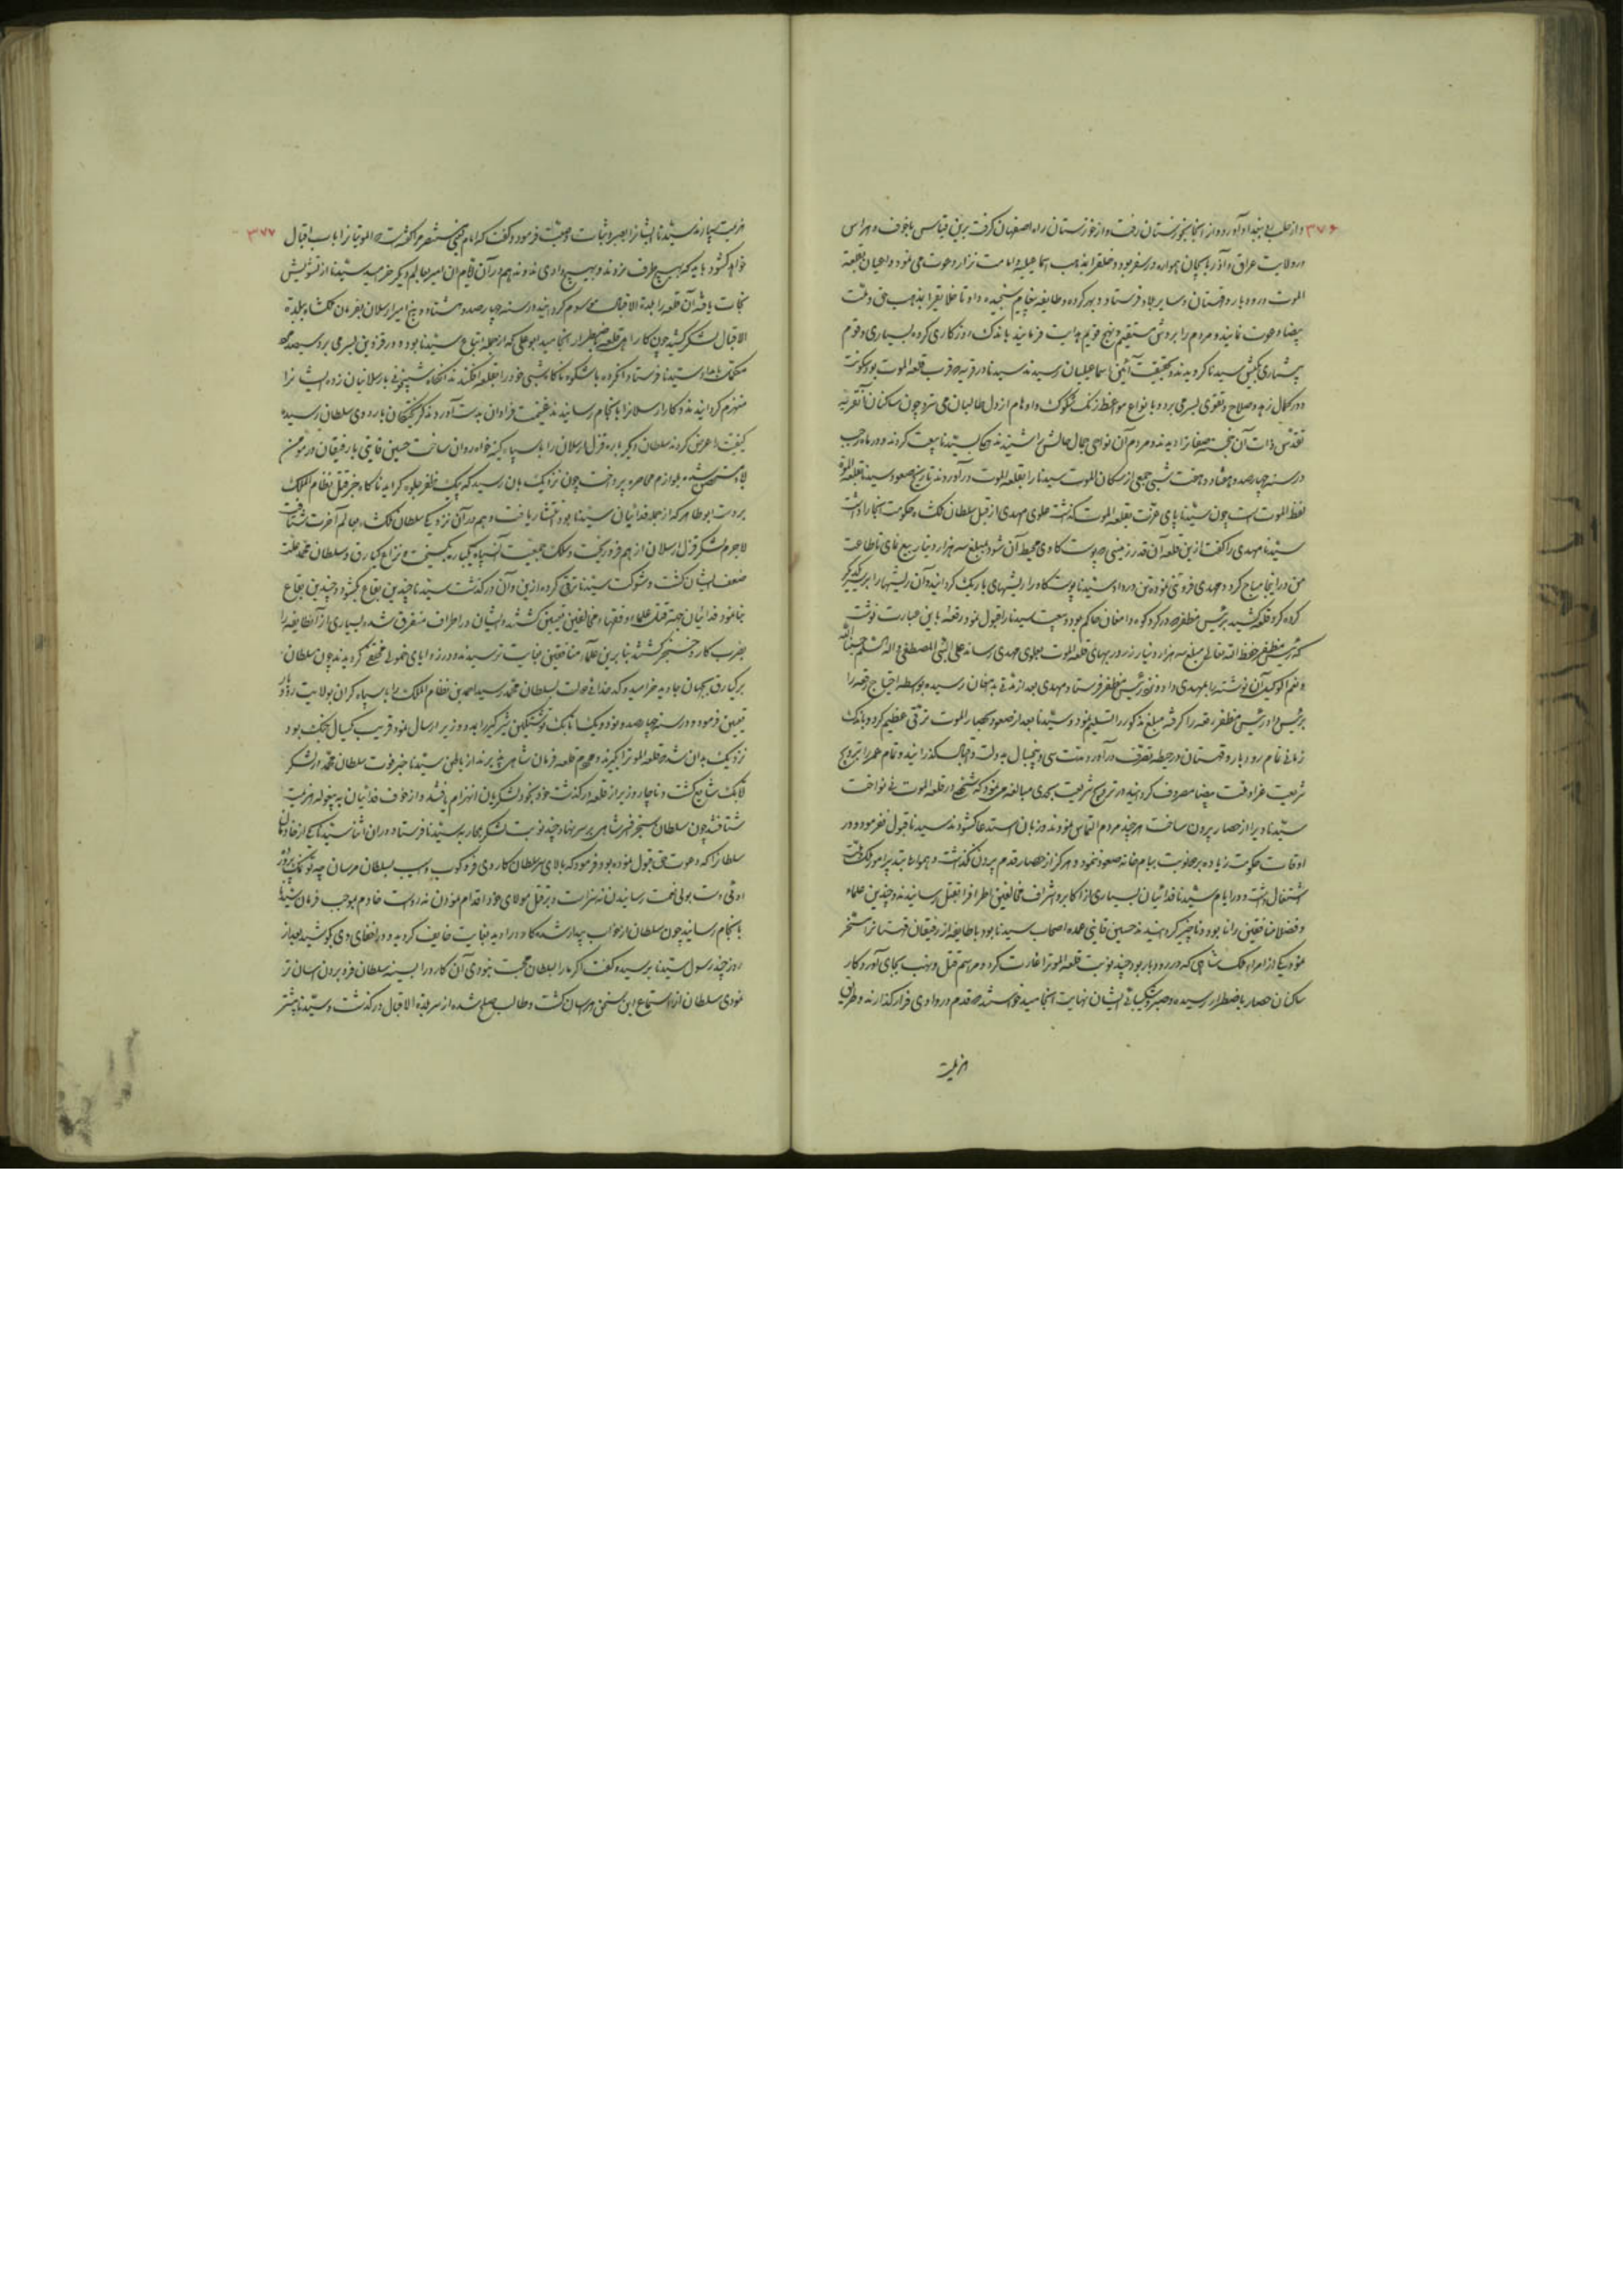 ۳۷۶
و از حلب به بغداد آورده و از آنجا بخوزستان رفت و از خوزستان راه اصفهان گرفت برین قیاس با خوف و هراس
در ولایت عراق و آذربایجان همواره در سفر بود و خلق را بمذهب اسماعیلیه و امامت نزار دعوت می نمود و داعیان بقلعه
الموت و رودبار و قهستان و سایر بلاد فرستاد و بهر کرده و طایفه پیغام سنجیده داد تا خلایق را بمذهب حق و ملت
بیضا دعوت نمایند و مردم را بروش مستقیم و نهج قویم هدایت فرمایند باندک روزگاری گروه بسیاری و قوم
بیشماری بکیش سیدنا گرویدند و بحقیقت آئین اسماعیلیان رسیدند سیدنا در قریه قرب قلعه الموت بود سکونت
و در کمال زهد و صلاح و تقوی بسر می برد و بانواع مواعظ زنگ شکوک و اوهام از دل طالبان می سترد چون ساکنان آن قریه
تقدس ذات آن خجسته صفات را دیدند و مردم آن نواحی جمال حالش را شنیدند بسیدنا بیعت کردند و در ماه رجب
در سنه چهارصد و هشتاد و هفت شبی جمعی از سکان الموت سیدنا را بقلعه الموت در آوردند تاریخ صعود سیدنا بقلعه الموت
لفظ الموت است چون سیدنا پای عزت بقلعه الموت گذاشت علوی مهدی از قبل سلطان ملکشاه حکومت آنجا را داشت
سیدنا مهدی را گفت ازین قلعه آن قدر زمینی که پوست گاوی محیط آن شود بمبلغ سه هزار دینار بیع نمای تا طاعت
حق در اینجا مباح گردد مهدی فروختن نموده تن در داد سیدنا پوست گاو را ریشهای باریک گردانید و آن ریشها را بر یکدیگر
کرده گرد قلعه کشید برئیس مظفر که در کردکوه و دامغان حاکم بود و بیعت سیدنا را قبول نمود رقعه باین عبارت نوشت
که رئیس مظفر حفظه الله تعالی مبلغ سه هزار دینار زر در بهای قلعه الموت بعلوی مهدی رساند علی النبی المصطفی و اله السلام حسبنا الله
و نعم الوکیل آن نوشته را بمهدی داد و نزد رئیس مظفر فرستاد مهدی بعد از مدتی بدامغان رسیده بواسطه احتیاج رقعه را
برئیس داد رئیس مظفر رقعه را گرفته مبلغ مذکور را تسلیم نمود و سیدنا بعد از صعود بحصار الموت ترقی عظیم کرد و باندک
زمانی تمام رودبار و قهستان در حیطه تصرف در آورد و مدت سی و پنج سال بدولت و اقبال گذرانید و تمام عمر را بترویج
شریعت غرا و ملت بیضا مصروف گردانید و در ترویج شریعت بحدی مبالغه می نمود که شخصی در قلعه الموت نی نواخت
سیدنا ویرا از حصار بیرون ساخت هرچند مردم التماس نمودند و زبان استدعا گشودند سیدنا قبول نفرمود و در
اوقات حکومت زیاده بر دو نوبت ببام خانه صعود ننمود و هرگز از حصار قدم بیرون نگذاشت و همواره بتدبیر امور ملک
اشتغال داشت و در ایام سیدنا فدائیان بسیاری از اکابر و اشراف مخالفین اطراف را بقتل رسانیدند و چندین علماء
و فضلا منافقین را نابود و ناچیز گردانیدند حسین قاینی عمده اصحاب سیدنا بود با طایفه از رفیقان قهستان را مسخر
نمود یکی از امراء ملکشاهی که در رودبار بود چند نوبت قلعه الموت را غارت کرد و مراسم قتل و نهب بجای آورد و کار
ساکنان حصار باضطرار رسیده و صبر و شکیبائی ایشان نهایت انجامید خواستند که قدم در وادی فرار گذارند و طریق
هزیمت
۳۷۷
هزیمت سپارند سیدنا ایشان را بصبر و ثبات وصیت فرمود و گفت که امام یعنی مستنصر مرا گفته است که الموتیان را ابواب اقبال
خواهد گشود باید که بهیچ طرف نروند و بهیچ وادی ندوند هم در آن ایام آن امیر بعالم دیگر خرامید سیدنا از تشویش
نجات یافته آن قلعه را بلدة الاقبال موسوم گردانید و در سنه چهارصد و هشتاد و پنج امیر ارسلان بفرمان ملکشاه ببلدة
الاقبال لشکر کشید چون کار اهل قلعه باضطرار انجامید ابو علی که از جمله اتباع سیدنا بود و در قزوین بسر می برد سیصد مرد
مکمل بامداد سیدنا فرستاد آن گروه با شکوه ناگاه شبی خود را بقلعه افکندند آنگاه شبیخونی بارسلانیان زده ایشان را
منهزم گردانیدند و کار ارسلان را بانجام رسانیدند غنیمت فراوان بدست آوردند گریختگان باردوی سلطان رسیده
کیفیت را عرض کردند سلطان دیگر باره قزل ارسلان را با سپاه کینه خواه روان ساخت حسین قاینی با رفیقان در مومن
متحصن شده بلوازم محاصره پرداخت چون نزدیک بآن رسید که پیک ظفر جلوه گر آید ناگاه خبر قتل نظام الملک
بر دست ابو طاهر که از جمله فدائیان سیدنا بود انتشار یافت و هم در آن نزدیکی سلطان ملکشاه بعالم آخرت شتافت
لاجرم لشکر قزل ارسلان از هم فرو ریخت و سلک جمعیت آن سپاه یکباره گسیخت و نزاع برکیارق و سلطان محمد علت
ضعف ایشان گشت و شوکت سیدنا ترقی کرده ازین و آن در گذشت سیدنا چندین بقاع بگشود و چندین بقاع
بنا نمود فدائیان جهة قتل علماء و فقهاء و مخالفین تعیین گشتند و ایشان در اطراف متفرق شده بسیاری از آن طایفه را
بضرب کارد و خنجر کشتند بنابرین علماء منافقین بغایت ترسیدند و در زوایای خمول مختفی گردیدند چون سلطان
برکیارق بجهان جاوید خرامید و کدخدائی دولت بسلطان محمد رسید احمد بن نظام الملک را با سپاه گران بولایت رودبار
تعیین فرمود و در سنه چهارصد و نود و یک اتابک نوشتکین شیرگیر را بمدد وزیر ارسال نمود قریب یکسال جنگ بود
نزدیک بدان شد که قلعه الموت را بگیرند و مردم قلعه فرمان شاهی پذیرند از باطن سیدنا خبر فوت سلطان محمد در لشکر
اتابک شایع گشت و ناچار وزیر از قلعه در گذشت خود بخود لشکریان انهزام یافتند و از خوف فدائیان به بیغوله هزیمت
شتافتند چون سلطان سنجر افسر شاهی بر سر نهاد چند نوبت لشکر بمحاربه سیدنا فرستاد در آن اثنا سیدنا یکی از خادمان
سلطان را که دعوت حق قبول نموده بود فرمود که بالای سر سلطان کاردی فرو کوب و آسیب بسلطان مرسان چه تو نمک پرورده
اوئی دست بولی نعمت رسانیدن نه سزاست و بر قتل مولای خود اقدام نمودن نه رواست خادم بموجب فرمان سیدنا
بانجام رسانید چون سلطان از خواب بیدار شد کارد را دید بغایت خایف گردید و در اخفای وی کوشید بعد از
روز چند رسول سیدنا برسید و گفت اگر ما را بسلطان محبت نبودی آن کارد را بسینه سلطان فرو بردن آسان تر
نمودی سلطان از استماع این سخن هراسان گشت و طالب صلح شده از سر بلدة الاقبال در گذشت و سیدنا بیشتر